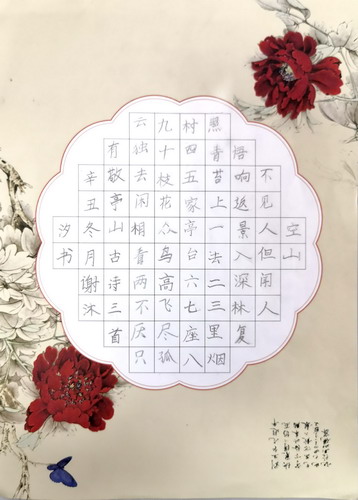 空山
不见人但闻人
语响返景入深林复
照青苔上一去二三里烟
村四五家亭台六七座八
九十枝花众鸟高飞尽孤
云独去闲相看两不厌只
有敬亭山古诗三首
辛丑冬月谢沐
汐书